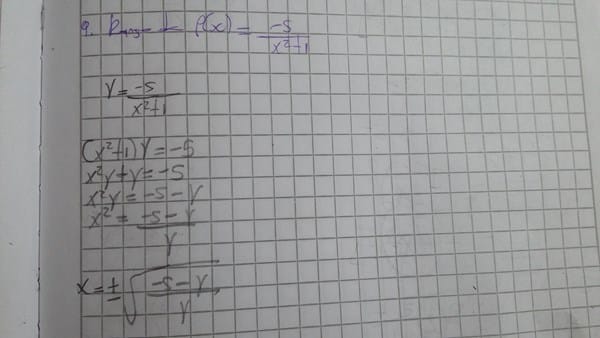 9. f(x) = -5/(x²+1)
Y = -5/(x²+1)
(x²+1)Y = -5
x²y+y = -5
x²y = -5 - Y
x² = (-5 - Y)/Y
x = ±√((-5 - Y)/Y)